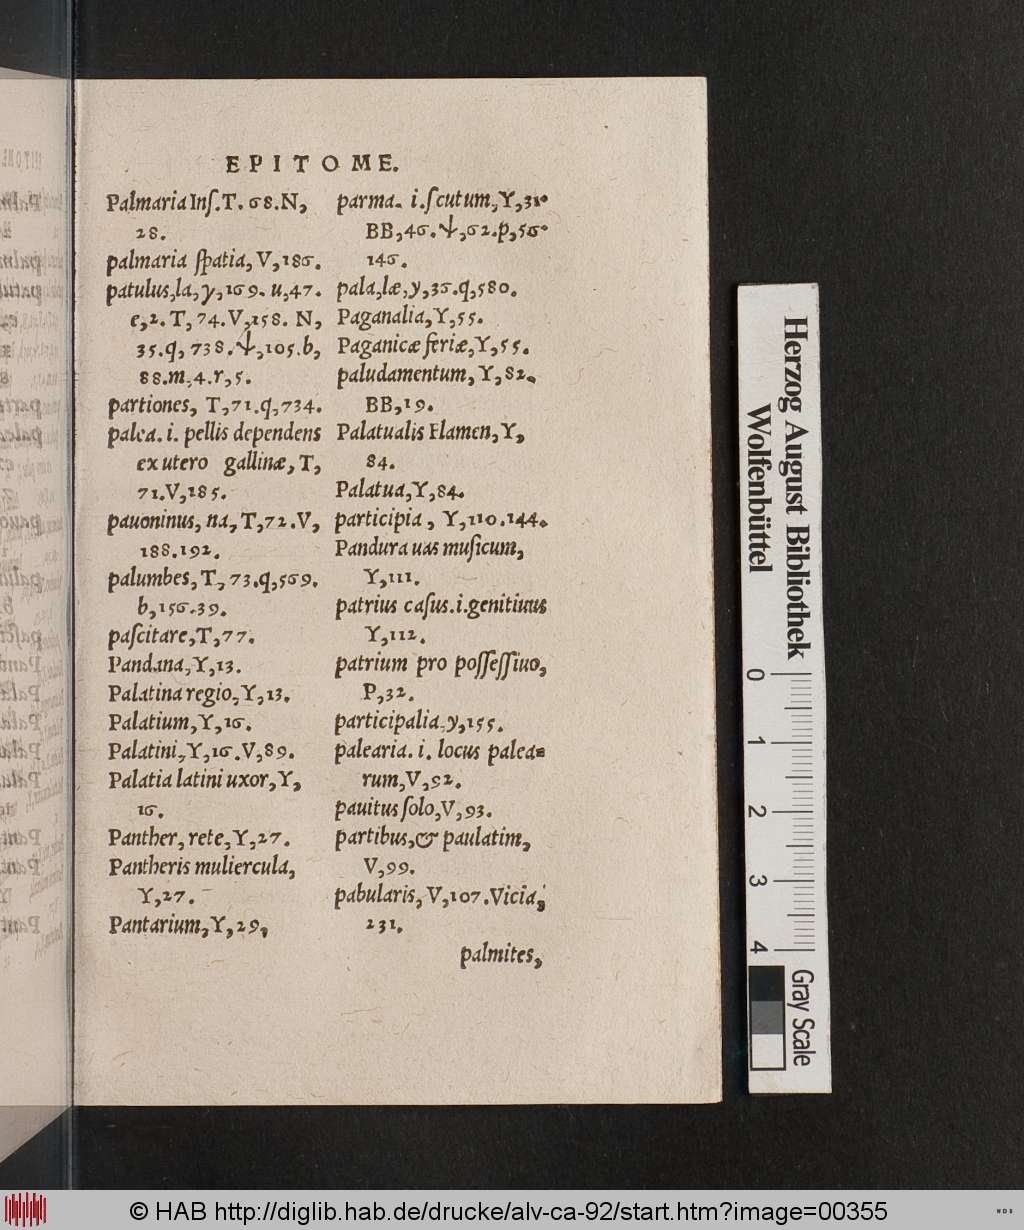 EPITOME.
Palmaria Inſ.T.68.N,
28.
palmaria ſpatia, V, 186.
patulus,la, y, 169. u, 47.
e, 2. T, 74. V, 158. N,
35. q, 738. Ψ, 105. b,
88. m, 4. r, 5.
partiones, T, 71. q, 734.
palea. i. pellis dependens
ex utero gallinæ, T,
71. V, 185.
pauoninus, na, T, 72. V,
188. 192.
palumbes, T, 73. q, 569.
b, 156. 39.
paſcitare, T, 77.
Pandana, Y, 13.
Palatina regio, Y, 13.
Palatium, Y, 16.
Palatini, Y, 16. V, 89.
Palatia latini uxor, Y,
16.
Panther, rete, Y, 27.
Pantheris muliercula,
Y, 27.
Pantarium, Y, 29,
parma. i. ſcutum, Y, 31.
BB, 46. Ψ, 62. p, 56.
146.
pala, læ, y, 36. q, 580.
Paganalia, Y, 55.
Paganicæ feriæ, Y, 55.
paludamentum, Y, 82,
BB, 19.
Palatualis Flamen, Y,
84.
Palatua, Y, 84.
participia, Y, 110. 144.
Pandura uas muſicum,
Y, 111.
patrius caſus. i. genitiuus
Y, 112.
patrium pro poſſeſſiuo,
P, 32.
participalia, y, 155.
palearia. i. locus palea=
rum, V, 92.
pauitus ſolo, V, 93.
partibus, & paulatim,
V, 99.
pabularis, V, 107. Vicia,
231.
palmites,
Herzog August Bibliothek
Wolfenbüttel
0 1 2 3 4
Gray Scale
© HAB http://diglib.hab.de/drucke/alv-ca-92/start.htm?image=00355